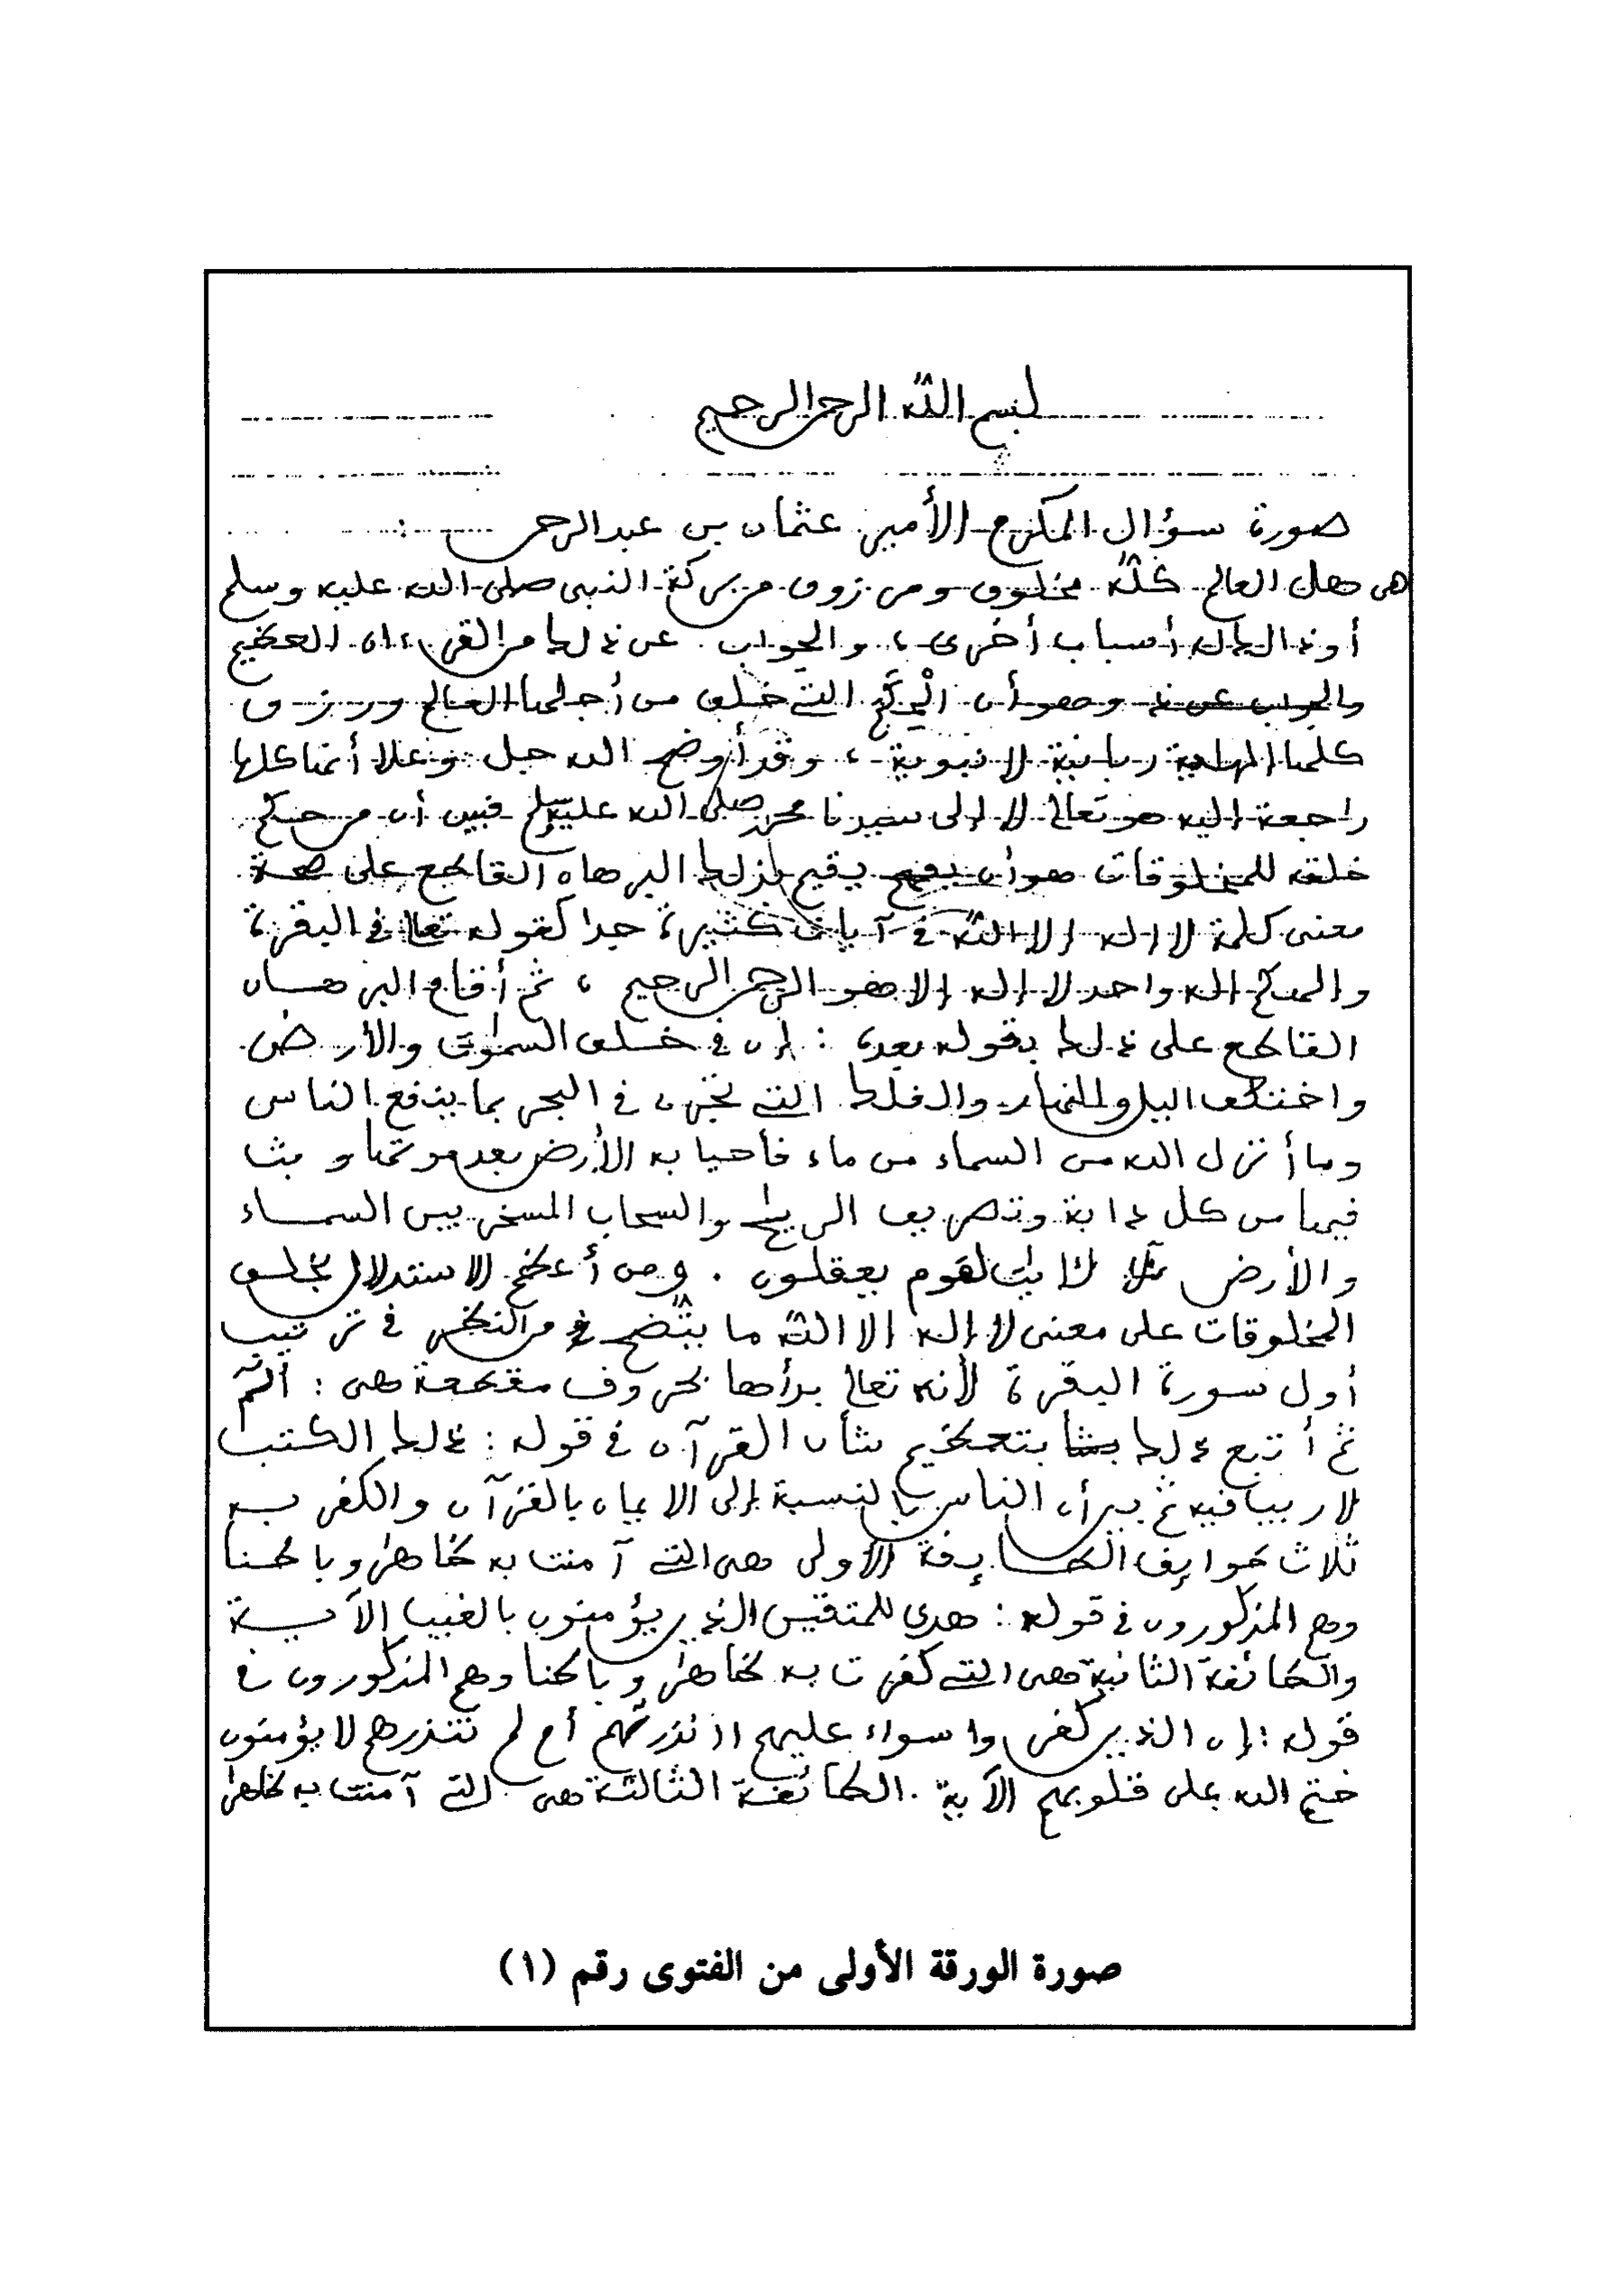 بسم الله الرحمن الرحيم
صورة سؤال المكرم الأمير عثمان بن عبد الرحمن :
هي هل العالم كله مخلوق ومرزوق من بركة النبي صلى الله عليه وسلم
أو لذلك أسباب أخرى ، والجواب عن ذلك من القرءان العظيم
والجواب عن ذ وهو أن الحِكَم التي خلق من أجلها العالم ورزق
كلها إلهية ربانية لا نبوية ، وقد أوضح الله جل وعلا أنها كلها
راجعة إليه هو تعالى لا إلى سيدنا محمد صلى الله عليه وسلم فبين أن من حكم
خلقه للمخلوقات هو أن يفهم يقيم بذلك البرهان القاطع على صحة
معنى كلمة لا إله إلا الله في آيات كثيرة جدا كقوله تعالى في البقرة
وإلهكم إله واحد لا إله إلا هو الرحمن الرحيم ، ثم أقام البرهان
القاطع على ذلك بقوله بعده : إن في خلق السموت والأرض
واختلف اليل والنهار والفلك التي تجري في البحر بما ينفع الناس
وما أنزل الله من السماء من ماء فأحيا به الأرض بعد موتها وبث
فيها من كل دابة وتصريف الريح والسحاب المسخر بين السماء
والأرض لأيت لقوم يعقلون . ومن أعظم الاستدلال بخلق
المخلوقات على معنى لا إله إلا الله ما يتضح من النظر في ترتيب
أول سورة البقرة لأنه تعالى بدأها بحروف مقطعة هي : الم
ثم أتبع ذلك بتعظيم شأن القرآن في قوله : ذلك الكتب
لا ريب فيه ثم بين أن الناس بالنسبة إلى الايمان بالقرآن والكفر به
ثلاث طوايف الطايفة الأولى هي التي آمنت به ظاهرا وباطنا
وهم المذكورون في قوله : هدى للمتقين الذين يؤمنون بالغيب الآية
والطائفة الثانية هي التي كفرت به ظاهرا وباطنا وهم المذكورون في
قوله : إن الذين كفروا سواء عليهم ءأنذرتهم أم لم تنذرهم لا يؤمنون
ختم الله على قلوبهم الآية . الطائفة الثالثة هي التي آمنت به ظاهرا
صورة الورقة الأولى من الفتوى رقم (١)